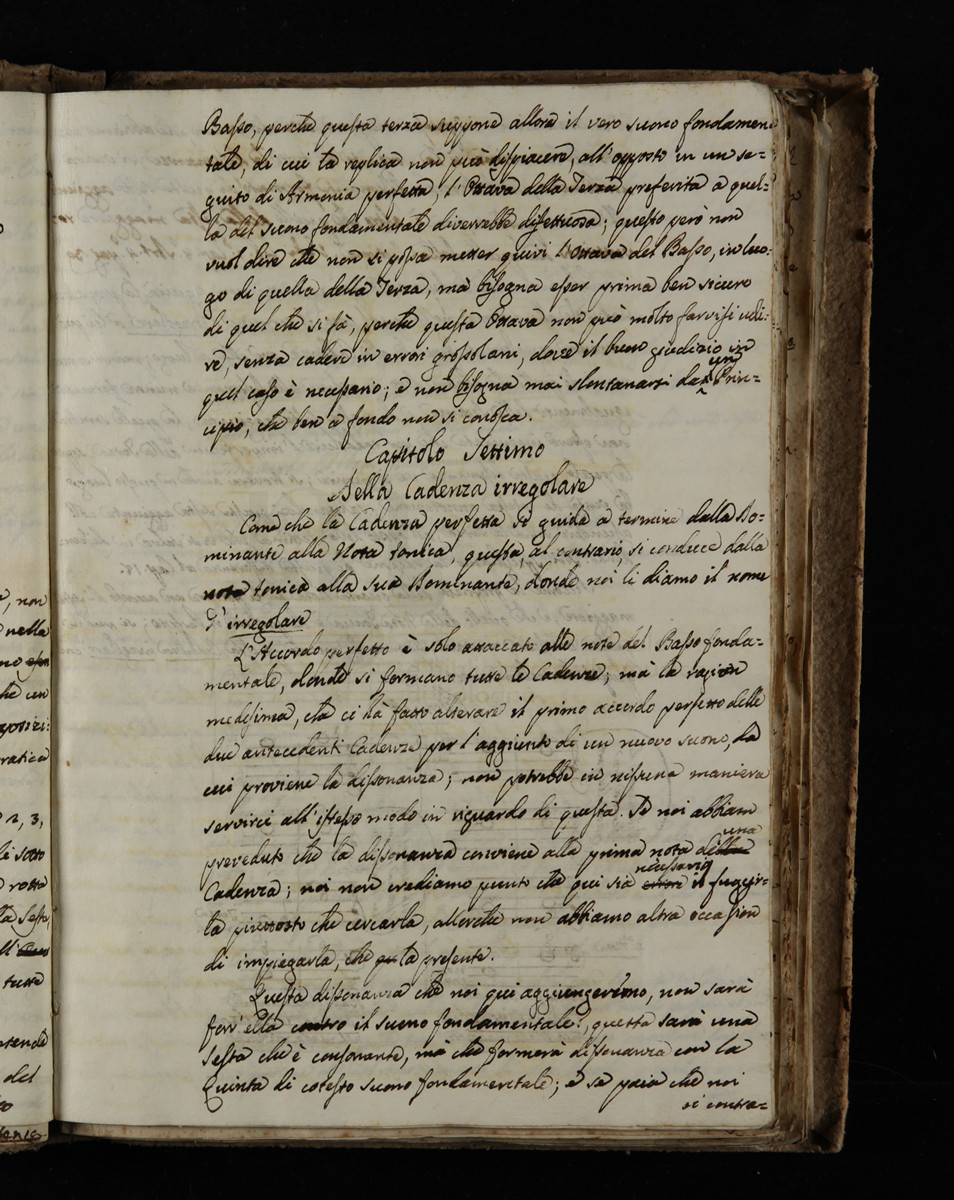 Basso, perche questa terza suppone allora il vero suono fondamen=
tale, di cui la replica non può dispiacere, all'opposto in un se=
guito di Armonia perfetta, l'Ottava della Terza preferita a quel=
la del suono fondamentale diverrebbe difettuosa; questo però non
vuol dire che non si possa metter quivi l'Ottava del Basso, in luo=
go di quella della Terza, mà bisogna esser prima ben sicuro
di quel che si fà, perche questa Ottava non può molto farvisi udi=
re, senza cadere in errori grossolani, dove il buon giudizio in
quel caso è necessario; e non bisogna mai slontanarsi da un Prin=
cipio, che ben a fondo non si conosca.
Capitolo Settimo
Della Cadenza irregolare
Come che la Cadenza perfetta si guida a termine dalla Do=
minante alla Nota tonica, questa, al contrario, si conduce dalla
nota tonica alla sua Dominante, donde noi li diamo il nome
d'irregolare
L'Accordo perfetto è solo attaccato alle note del Basso fonda=
mentale, donde si formano tutte le Cadenze; mà la ragion
medesima, che ci hà fatto alterare il primo accordo perfetto delle
due antecedenti Cadenze per l'aggiunto di un nuovo suono, da
cui proviene la dissonanza; non potrebbe in nissuna maniera
servirci all'istesso modo in riguardo di questa. Se noi abbiam
preveduto che la dissonanza conviene alla prima nota della una
Cadenza; noi non crediamo punto che qui sia necessario il fuggir=
la piuttosto che cercarla, allorche non abbiamo altra occasion
di impiegarla, che la presente.
Questa dissonanza che noi qui aggiungeremo, non sarà
forr'ella contro il suono fondamentale?, questa sarà una
Sesta che è consonante, mà che formerà dissonanza con la
Quinta di cotesto suono fondamentale; e se paia che noi
ci contra=
, non
nella
che un
pratica
2, 3,
sotto
la Sesta,
tutte
del